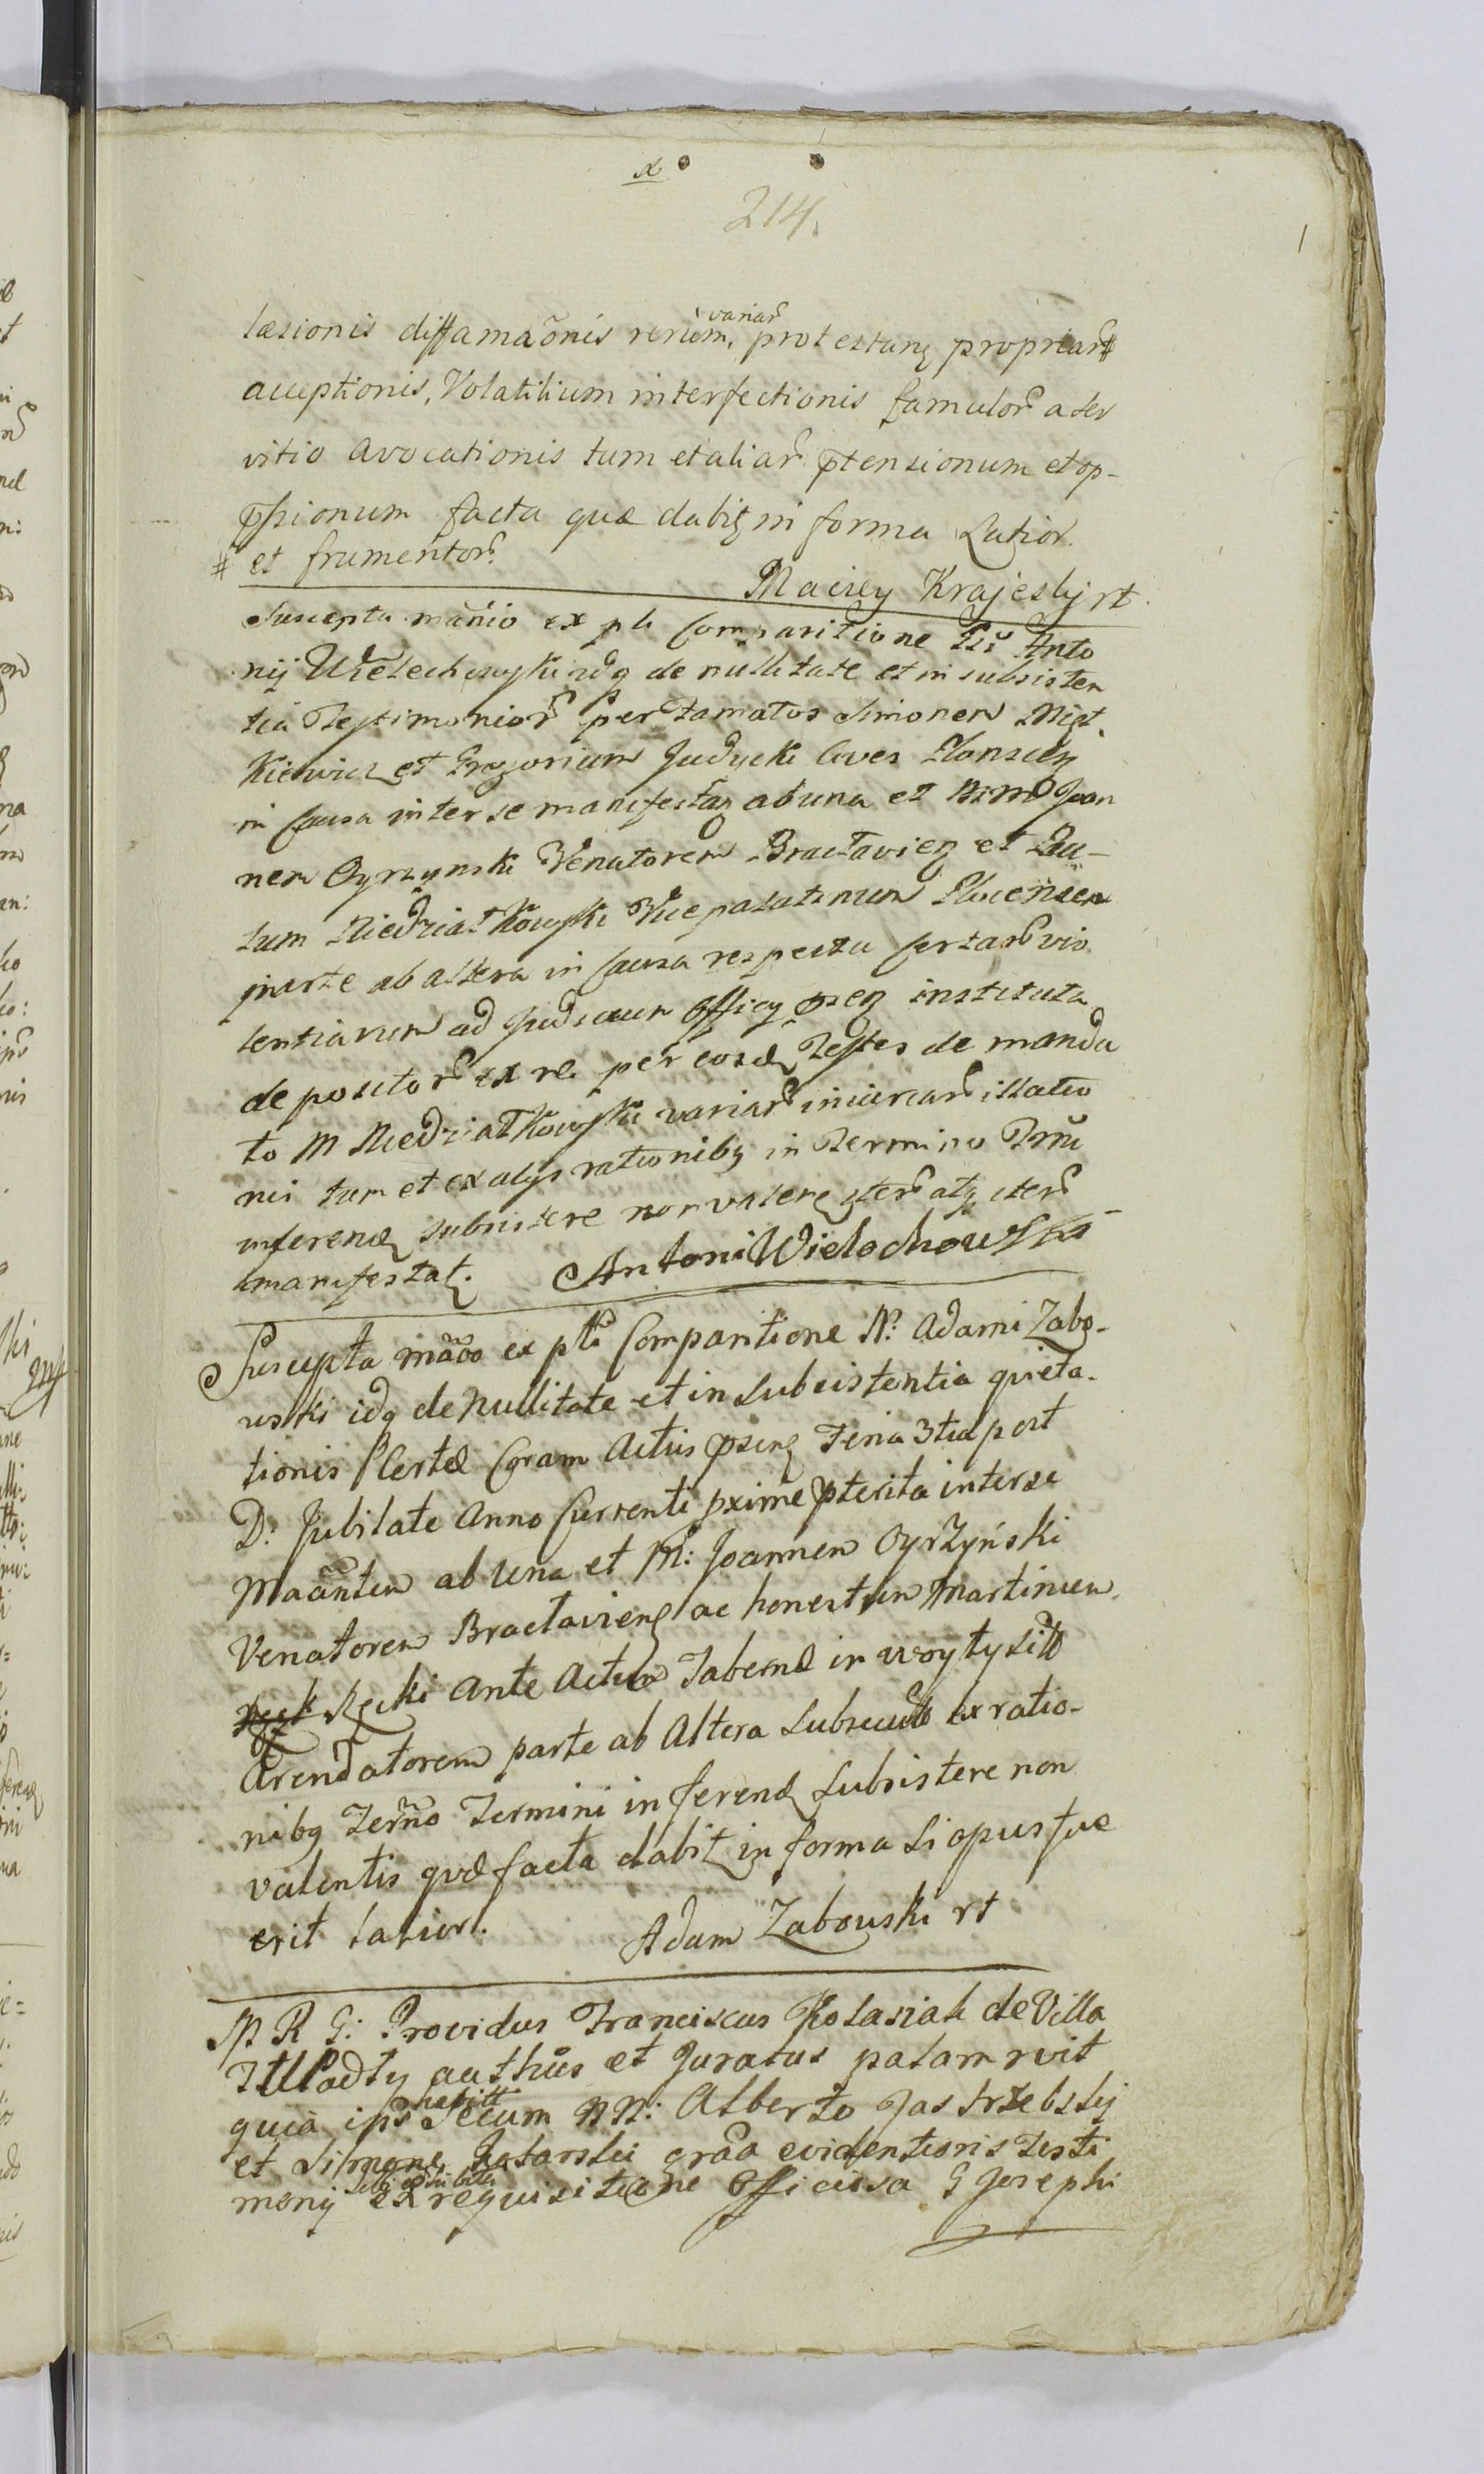 214.
læsionis diffamaõnis rerum variar protestanʒ propriar #
acceptionis, Volatilium interfectionis famulor a ser
vitio avocationis tum et aliar ptensionum et op-
pssionum facta quæ dabiʒ in forma Latior.
# et frumentor.
Maciey Krajeski rt.
Suscepta mãnio ex pli Comparitione Gsi Anto
nij Wielechowski idq de nullitate et in subsisten
tia Testimonior per Famatos Simonem
Kiewicz et Gregorium Judycki Cives Plonscen
in Causa inter se manifestanʒ ab una et MM Joan
nem Oyrzynski Venatorem Braclavienʒ et Pau-
lum Niedzialkowski Vicepalatinum Plocensem
parte ab altera in Causa respectu certar vio
lentiarum ad Judicium Officij psenʒ instituta
depositor ex re per eosd Testes de manda
to M Niedzialkowski variar iniuriar illatio
nis tum et ex alijs rationibʒ in Termino Trni
inferendʒ subsistere non valenʒ iter atqʒ iter
manifestatʒ. Antoni Wielochowski
Suscepta mãõo ex pli Comparitione N. Adami Zabo-
uski idq de Nullitate et in Subsistentia quieta-
tionis Certæ Coram Actis psenʒ Feria 3tia post
D. Jubilate Anno Currenti pxime pterita inter se
Maãntem ab una et M: Joannem Oyrzyński
Venatorem Braclavienʒ ac honestum Martinum
Recki Ante Actum Tabernæ in woyty Sitæ
Arendatorem parte ab Altera Subsecutæ ex ratio-
nibʒ Terño Termini inferendʒ Subsistere non
valentis quæ facta dabitʒ in forma Si opus fue
erit latiorʼ.
Adam Zabouski rt
M R G: Providus Franciscus Kolasiak de Villa
authus et Juratus palam rvit
quia ips habitt Secum NN: Alberto Jastrzebskij
et Simone grãa evidentioris testi
monij Sibi adhibitis ex requisitione Officiosa G Josephi